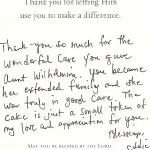 Thank you for letting Him
use you to make a difference.
Thank-you so much for the
wonderful care you gave
Aunt Wilhelmina. You became
her extended family and she
was truly in good care. The
cake is just a small token of
my love and appreciation for you.
Blessings,
Eddie
May you be blessed by the Lord